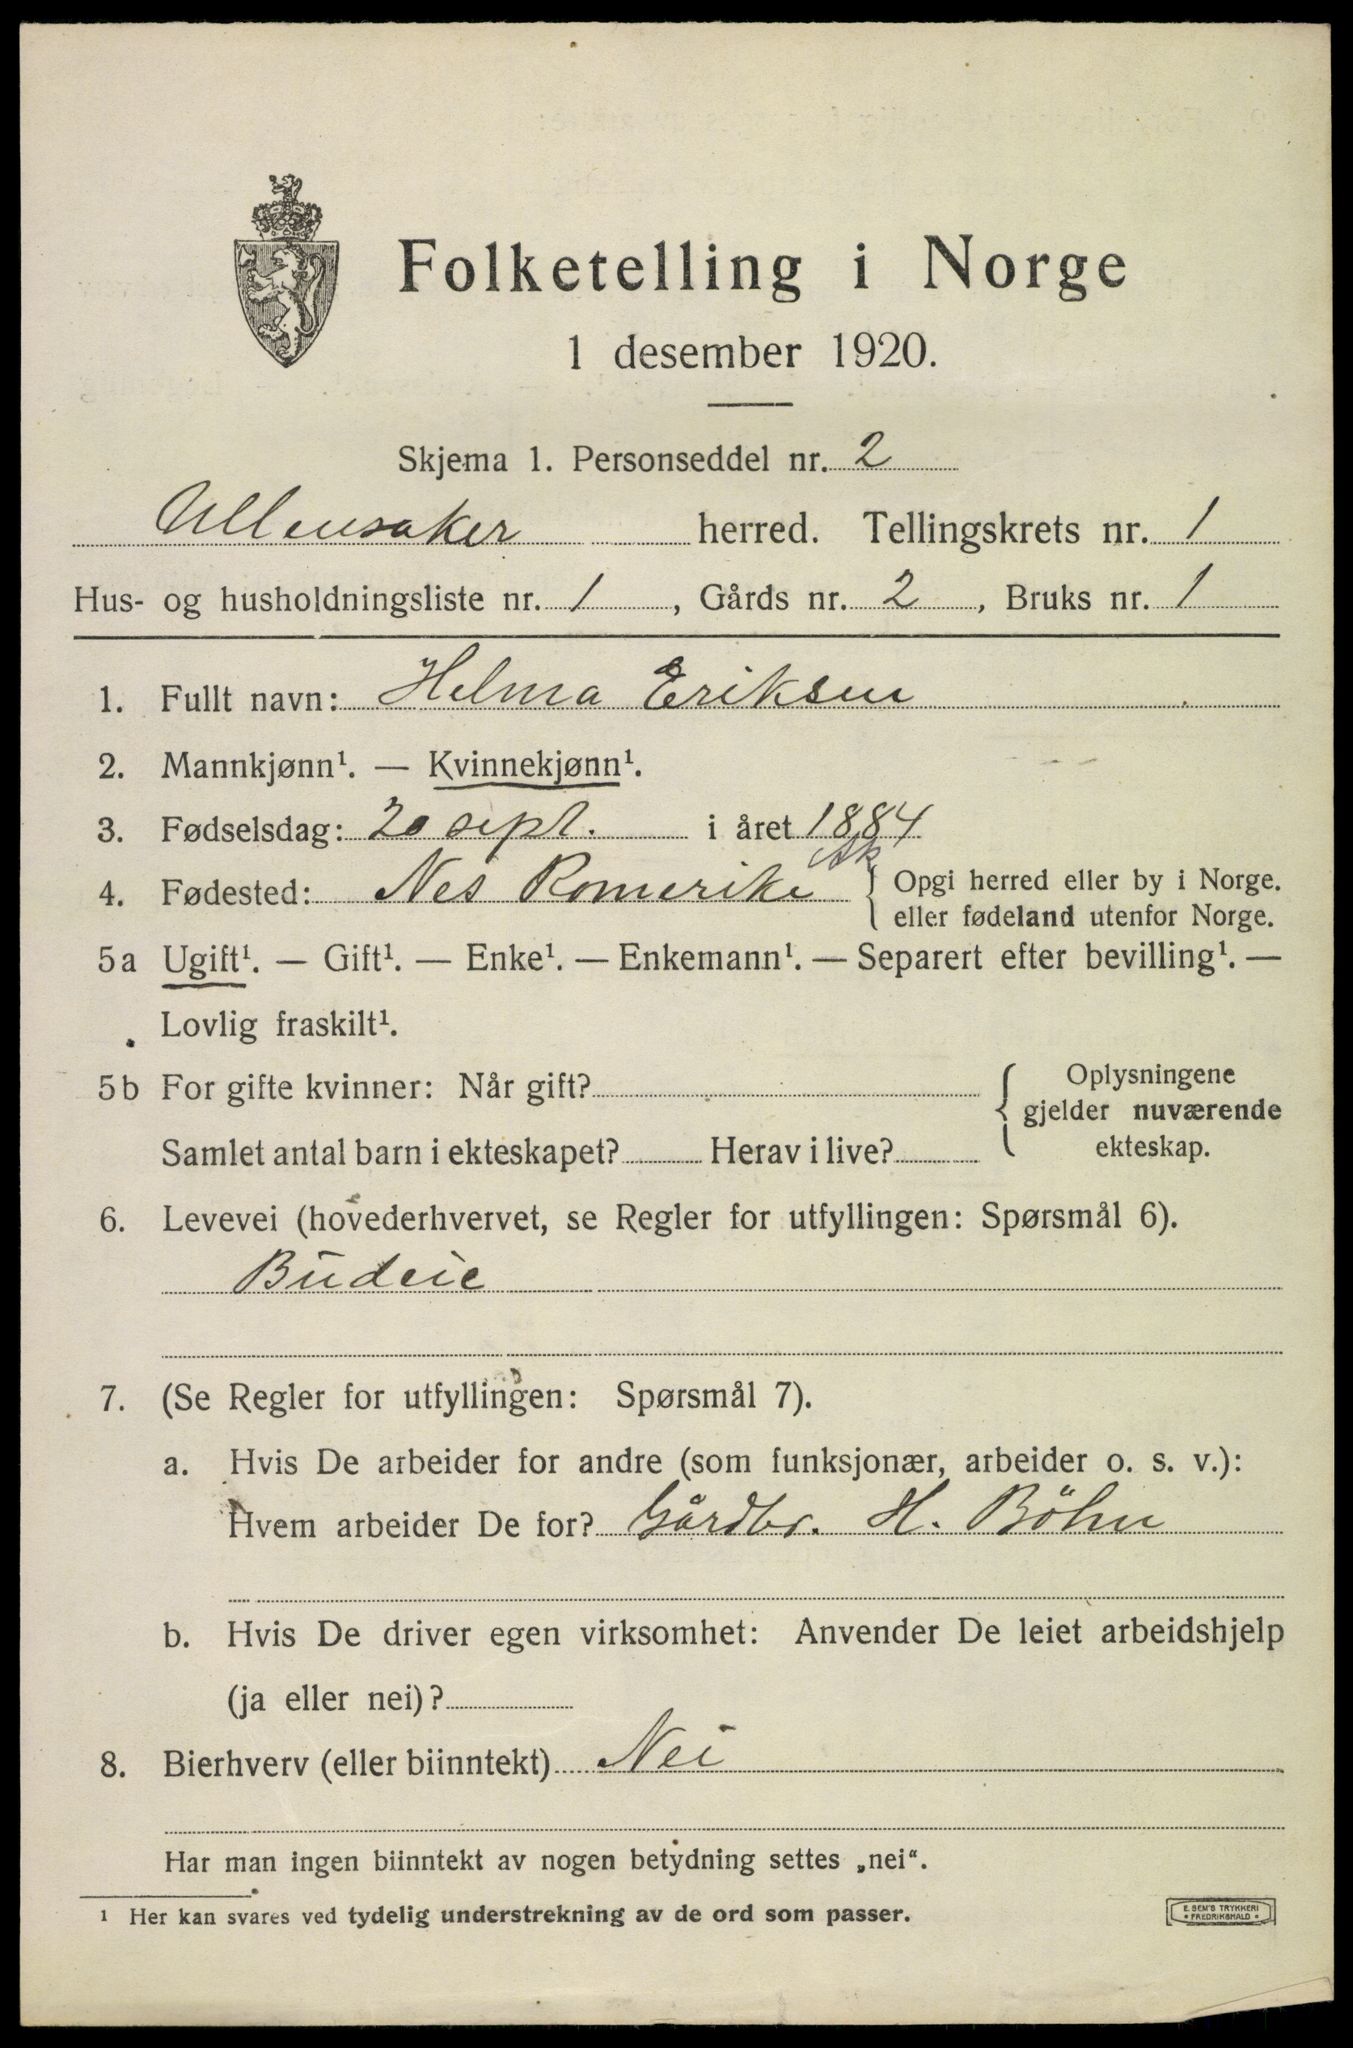 Folketelling i Norge
1 desember 1920.
Skjema 1. Personseddel nr. 2
Ullensaker herred. Tellingskrets nr. 1
Hus- og husholdningsliste nr. 1, Gårds nr. 2, Bruks nr. 1
1. Fullt navn: Helma Eriksen
2. Mannkjønn¹. — Kvinnekjønn¹.
3. Fødselsdag: 20 sept. i året 1884
Ak
4. Fødested: Nes Romerike { Opgi herred eller by i Norge.
eller fødeland utenfor Norge.
5a Ugift¹. — Gift¹. — Enke¹. — Enkemann¹. — Separert efter bevilling¹. —
Lovlig fraskilt¹.
5b For gifte kvinner: Når gift?
Samlet antal barn i ekteskapet? Herav i live?
Oplysningene
gjelder nuværende
ekteskap.
6. Levevei (hovederhvervet, se Regler for utfyllingen: Spørsmål 6).
Budeie
7. (Se Regler for utfyllingen: Spørsmål 7).
a. Hvis De arbeider for andre (som funksjonær, arbeider o. s. v.):
Hvem arbeider De for? Gårdbr. H. Böhn
b. Hvis De driver egen virksomhet: Anvender De leiet arbeidshjelp
(ja eller nei)?
8. Bierhverv (eller biinntekt) Nei
Har man ingen biinntekt av nogen betydning settes „nei“.
¹ Her kan svares ved tydelig understrekning av de ord som passer.
E. SEM'S TRYKKERI
• FREDRIKSHALD •